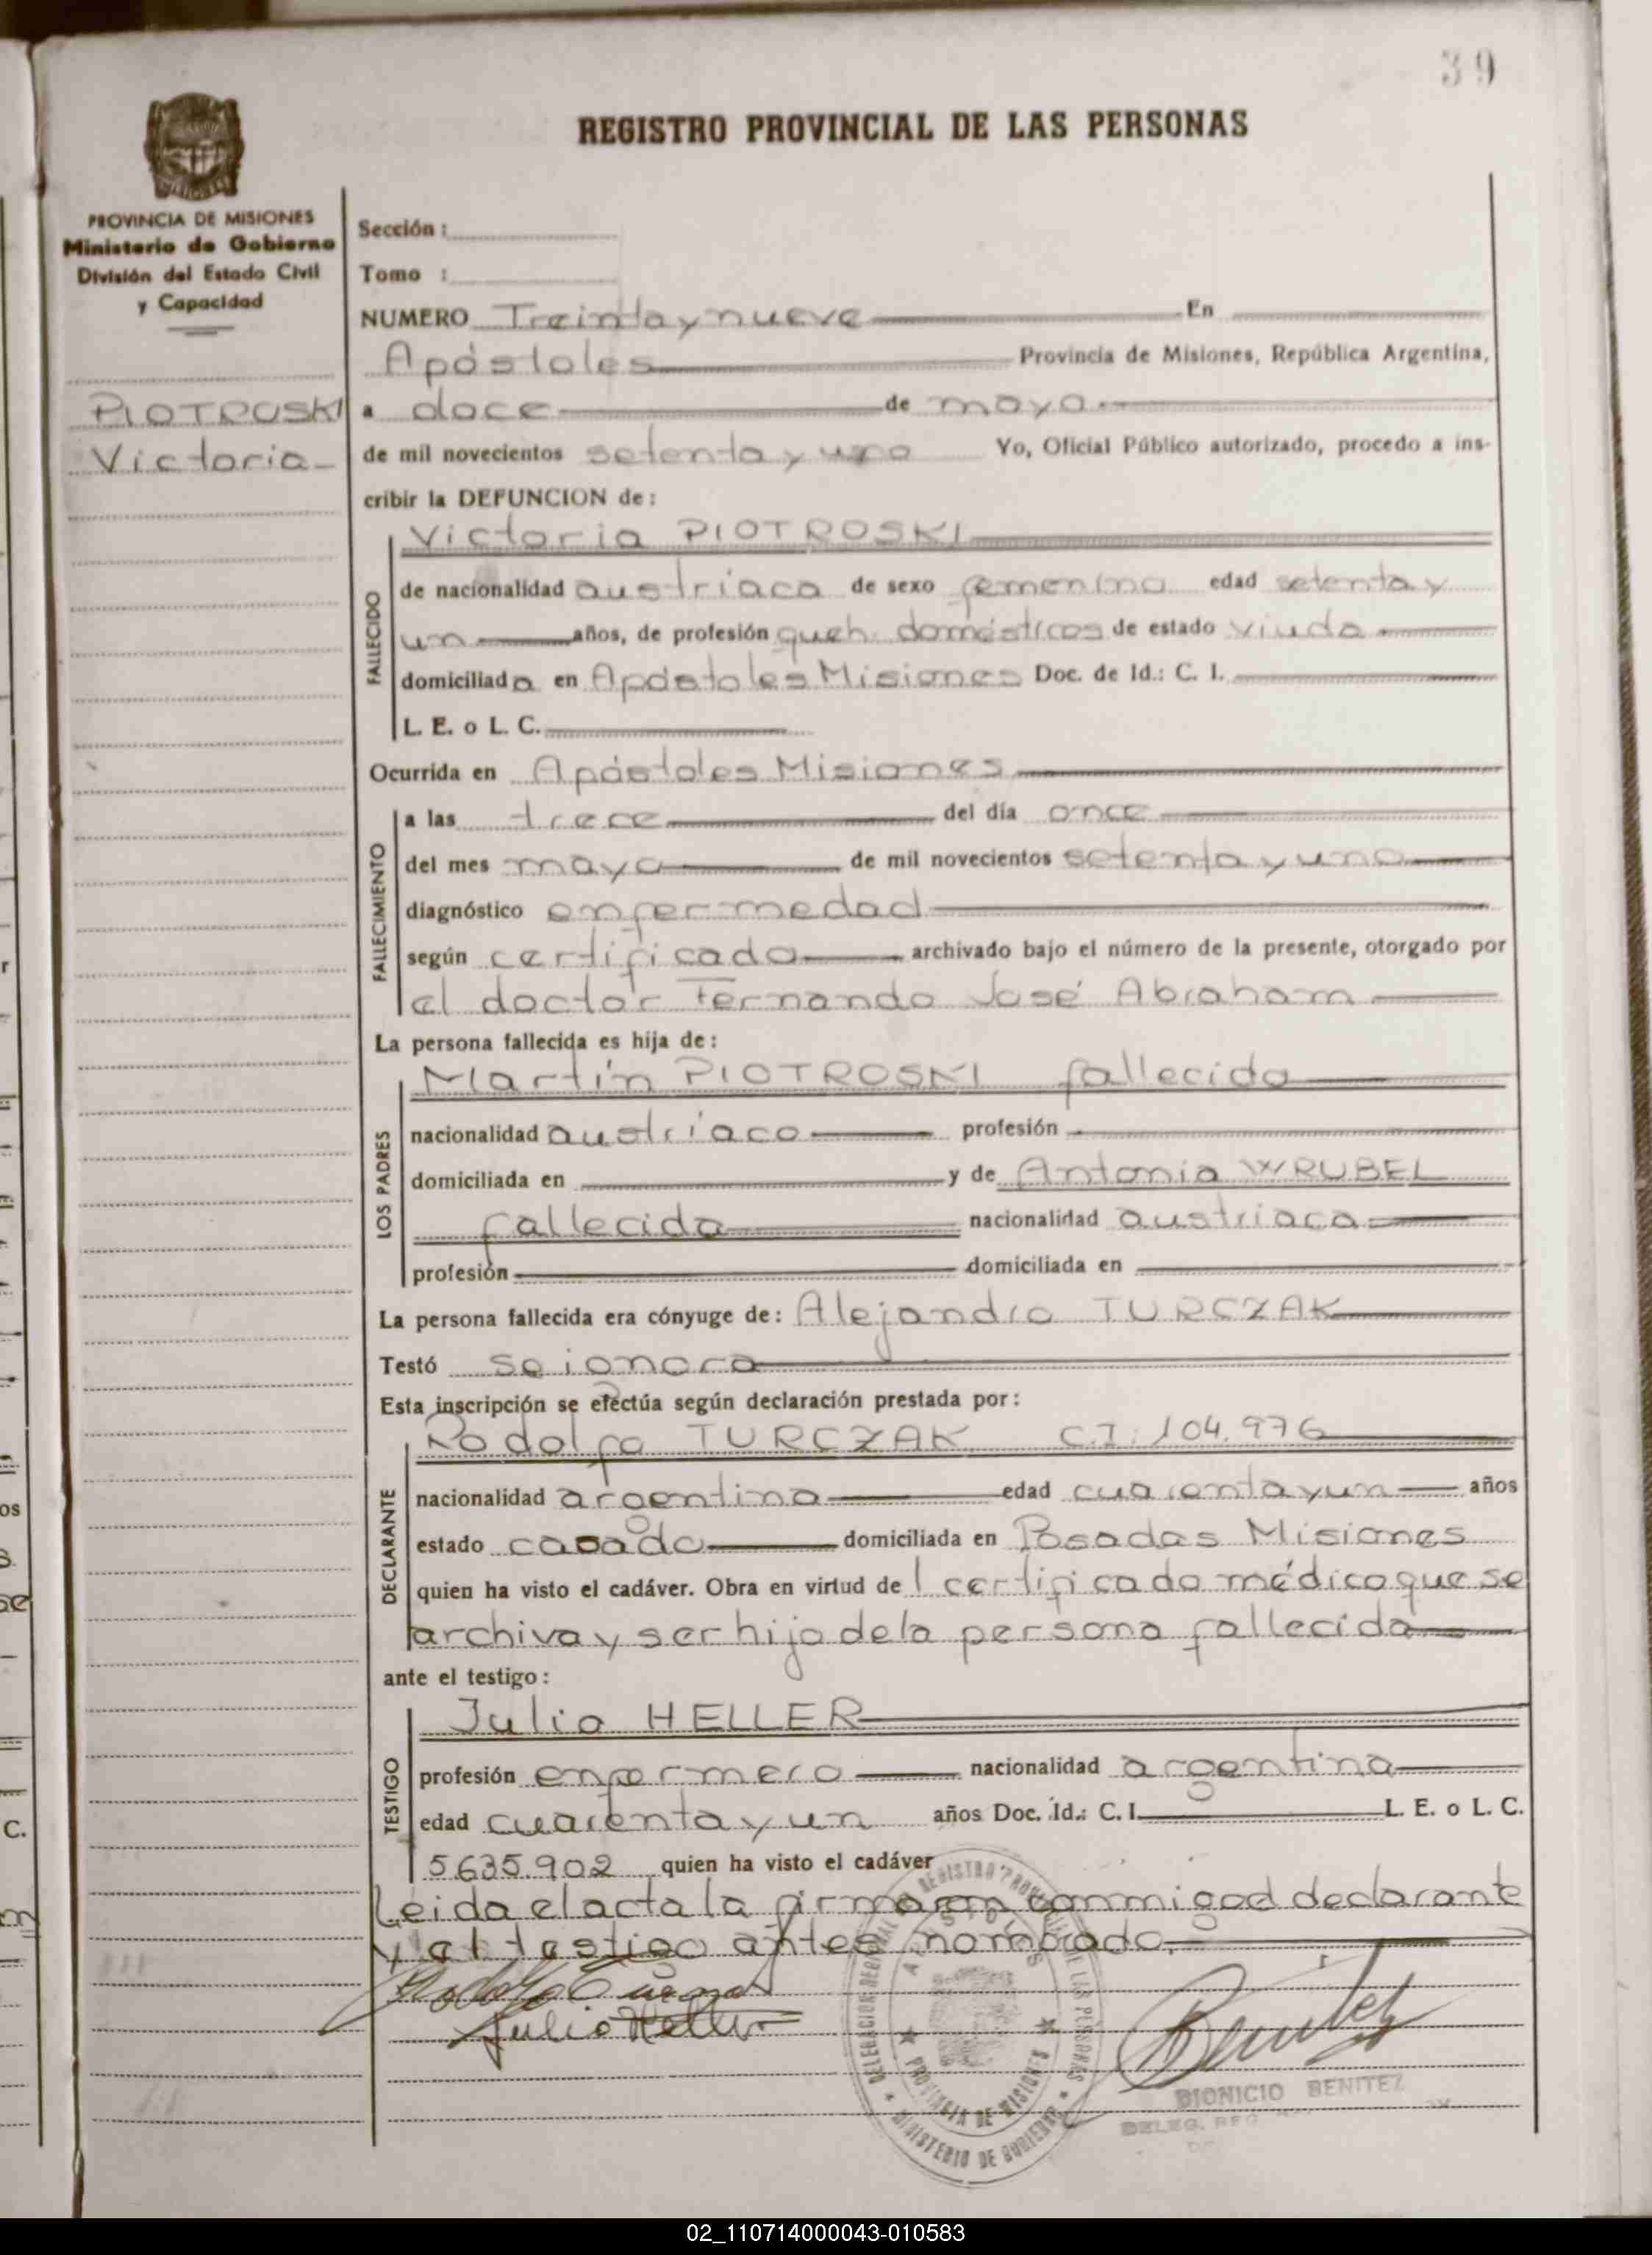 39
REGISTRO PROVINCIAL DE LAS PERSONAS
PROVINCIA DE MISIONES
Ministerio de Gobierno
División del Estado Civil
y Capacidad
PIOTROSKI
Victoria
Sección :
Tomo :
NUMERO Treinta y nueve En
Apóstoles Provincia de Misiones, República Argentina,
a doce de mayo
de mil novecientos setenta y uno Yo, Oficial Público autorizado, procedo a ins-
cribir la DEFUNCION de :
FALLECIDO
Victoria PIOTROSKI
de nacionalidad austriaca de sexo femenino edad setenta y
un años, de profesión queh. domésticos de estado viuda
domiciliada en Apóstoles Misiones Doc. de Id.: C. I.
L. E. o L. C.
Ocurrida en Apóstoles Misiones
FALLECIMIENTO
a las trece del día once
del mes mayo de mil novecientos setenta y uno
diagnóstico enfermedad
según certificado archivado bajo el número de la presente, otorgado por
el doctor Fernando José Abraham
La persona fallecida es hija de :
LOS PADRES
Martín PIOTROSKI fallecido
nacionalidad austriaco profesión
domiciliada en y de Antonia WRUBEL
fallecida nacionalidad austriaca
profesión domiciliada en
La persona fallecida era cónyuge de : Alejandro TURCZAK
Testó se ionora
Esta inscripción se efectúa según declaración prestada por :
DECLARANTE
Rodolfo TURCZAK C.I. 104.976
nacionalidad argentina edad cuarenta y un años
estado casado domiciliada en Posadas Misiones
quien ha visto el cadáver. Obra en virtud de l certificado médico que se
archiva y ser hijo de la persona fallecida
ante el testigo :
TESTIGO
Julio HELLER
profesión enfermero nacionalidad argentina
edad cuarenta y un años Doc. Id.: C. I. L. E. o L. C.
5635.902 quien ha visto el cadáver
Leida el acta la firmaron conmigo el declarante
y el testigo antes nombrado.
Julio Heller
Benitez
DELEGACION REGISTRO PROVINCIAL DE LAS PERSONAS
APOSTOLES
PROVINCIA DE MISIONES
MINISTERIO DE GOBIERNO
DIONICIO BENITEZ
DELEG. REG.
02_110714000043-010583